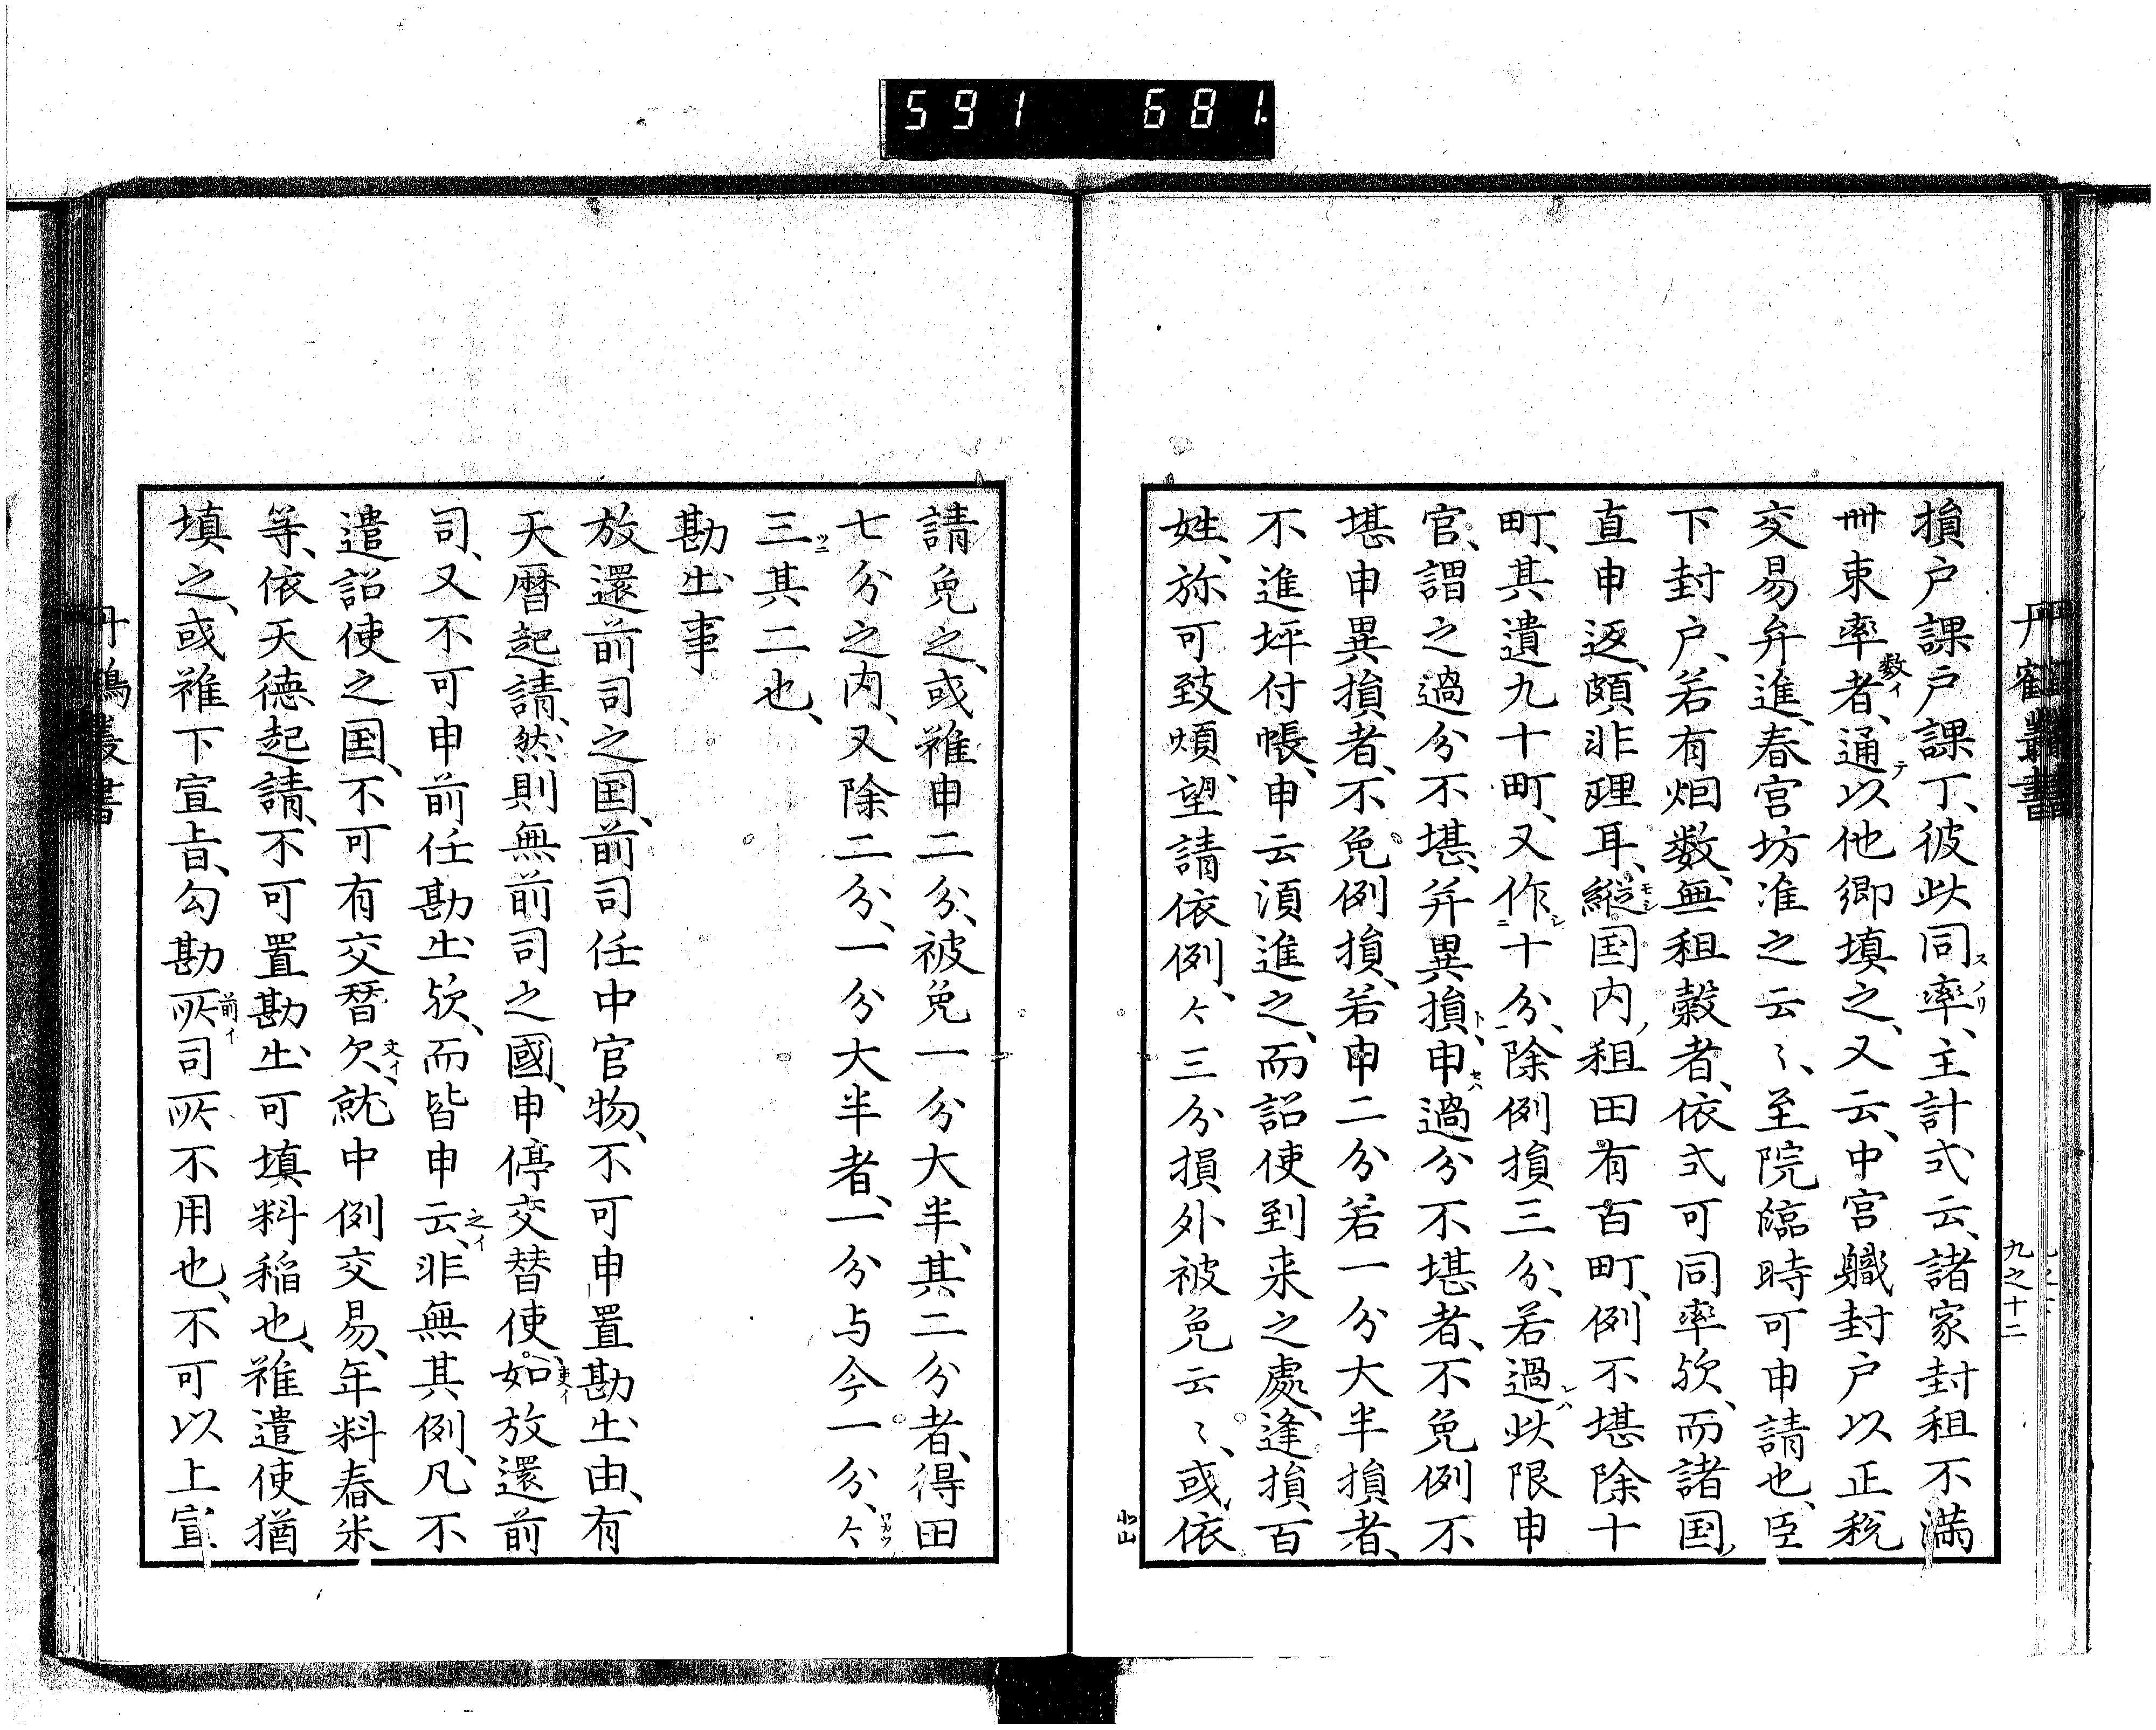 591 681.
丹鶴叢書
九之十二
損戸課戸課丁、彼此同率、主計式云、諸家封租不満
卌束率者、通以他郷填之、又云、中宮職封戸以正税
交易弁進、春宮坊准之云〻、至院臨時可申請也、臣
下封戸、若有烟数、無租穀者、依式可同率欤、而諸国
直申返、頗非理耳、縦国内租田有百町、例不堪除十
町、其遺九十町、又作十分、除例損三分、若過此限申
官、謂之過分不堪、并異損、申過分不堪者、不免例不
堪申異損者、不免例損、若申二分若一分大半損者、
不進坪付帳、申云須進之、而詔使到来之處、逢損百
姓、弥可致煩、望請依例、〻三分損外被免云〻、或依
請免之、或雖申二分、被免一分大半、其二分者、得田
七分之内、又除二分、一分大半者、一分与今一分、〻
三其二也、
勘出事
放還前司之国、前司任中官物、不可申置勘出由、有
天暦起請、然則無前司之國、申停交替使、如放還前
司、又不可申前任勘出欤、而皆申云、非無其例、凡不
遣詔使之国、不可有交替欠、就中例交易、年料舂米
等、依天徳起請、不可置勘出、可填料稲也、雖遣使猶
填之、或雖下宣旨、勾勘所司所不用也、不可以上宣
丹鶴叢書